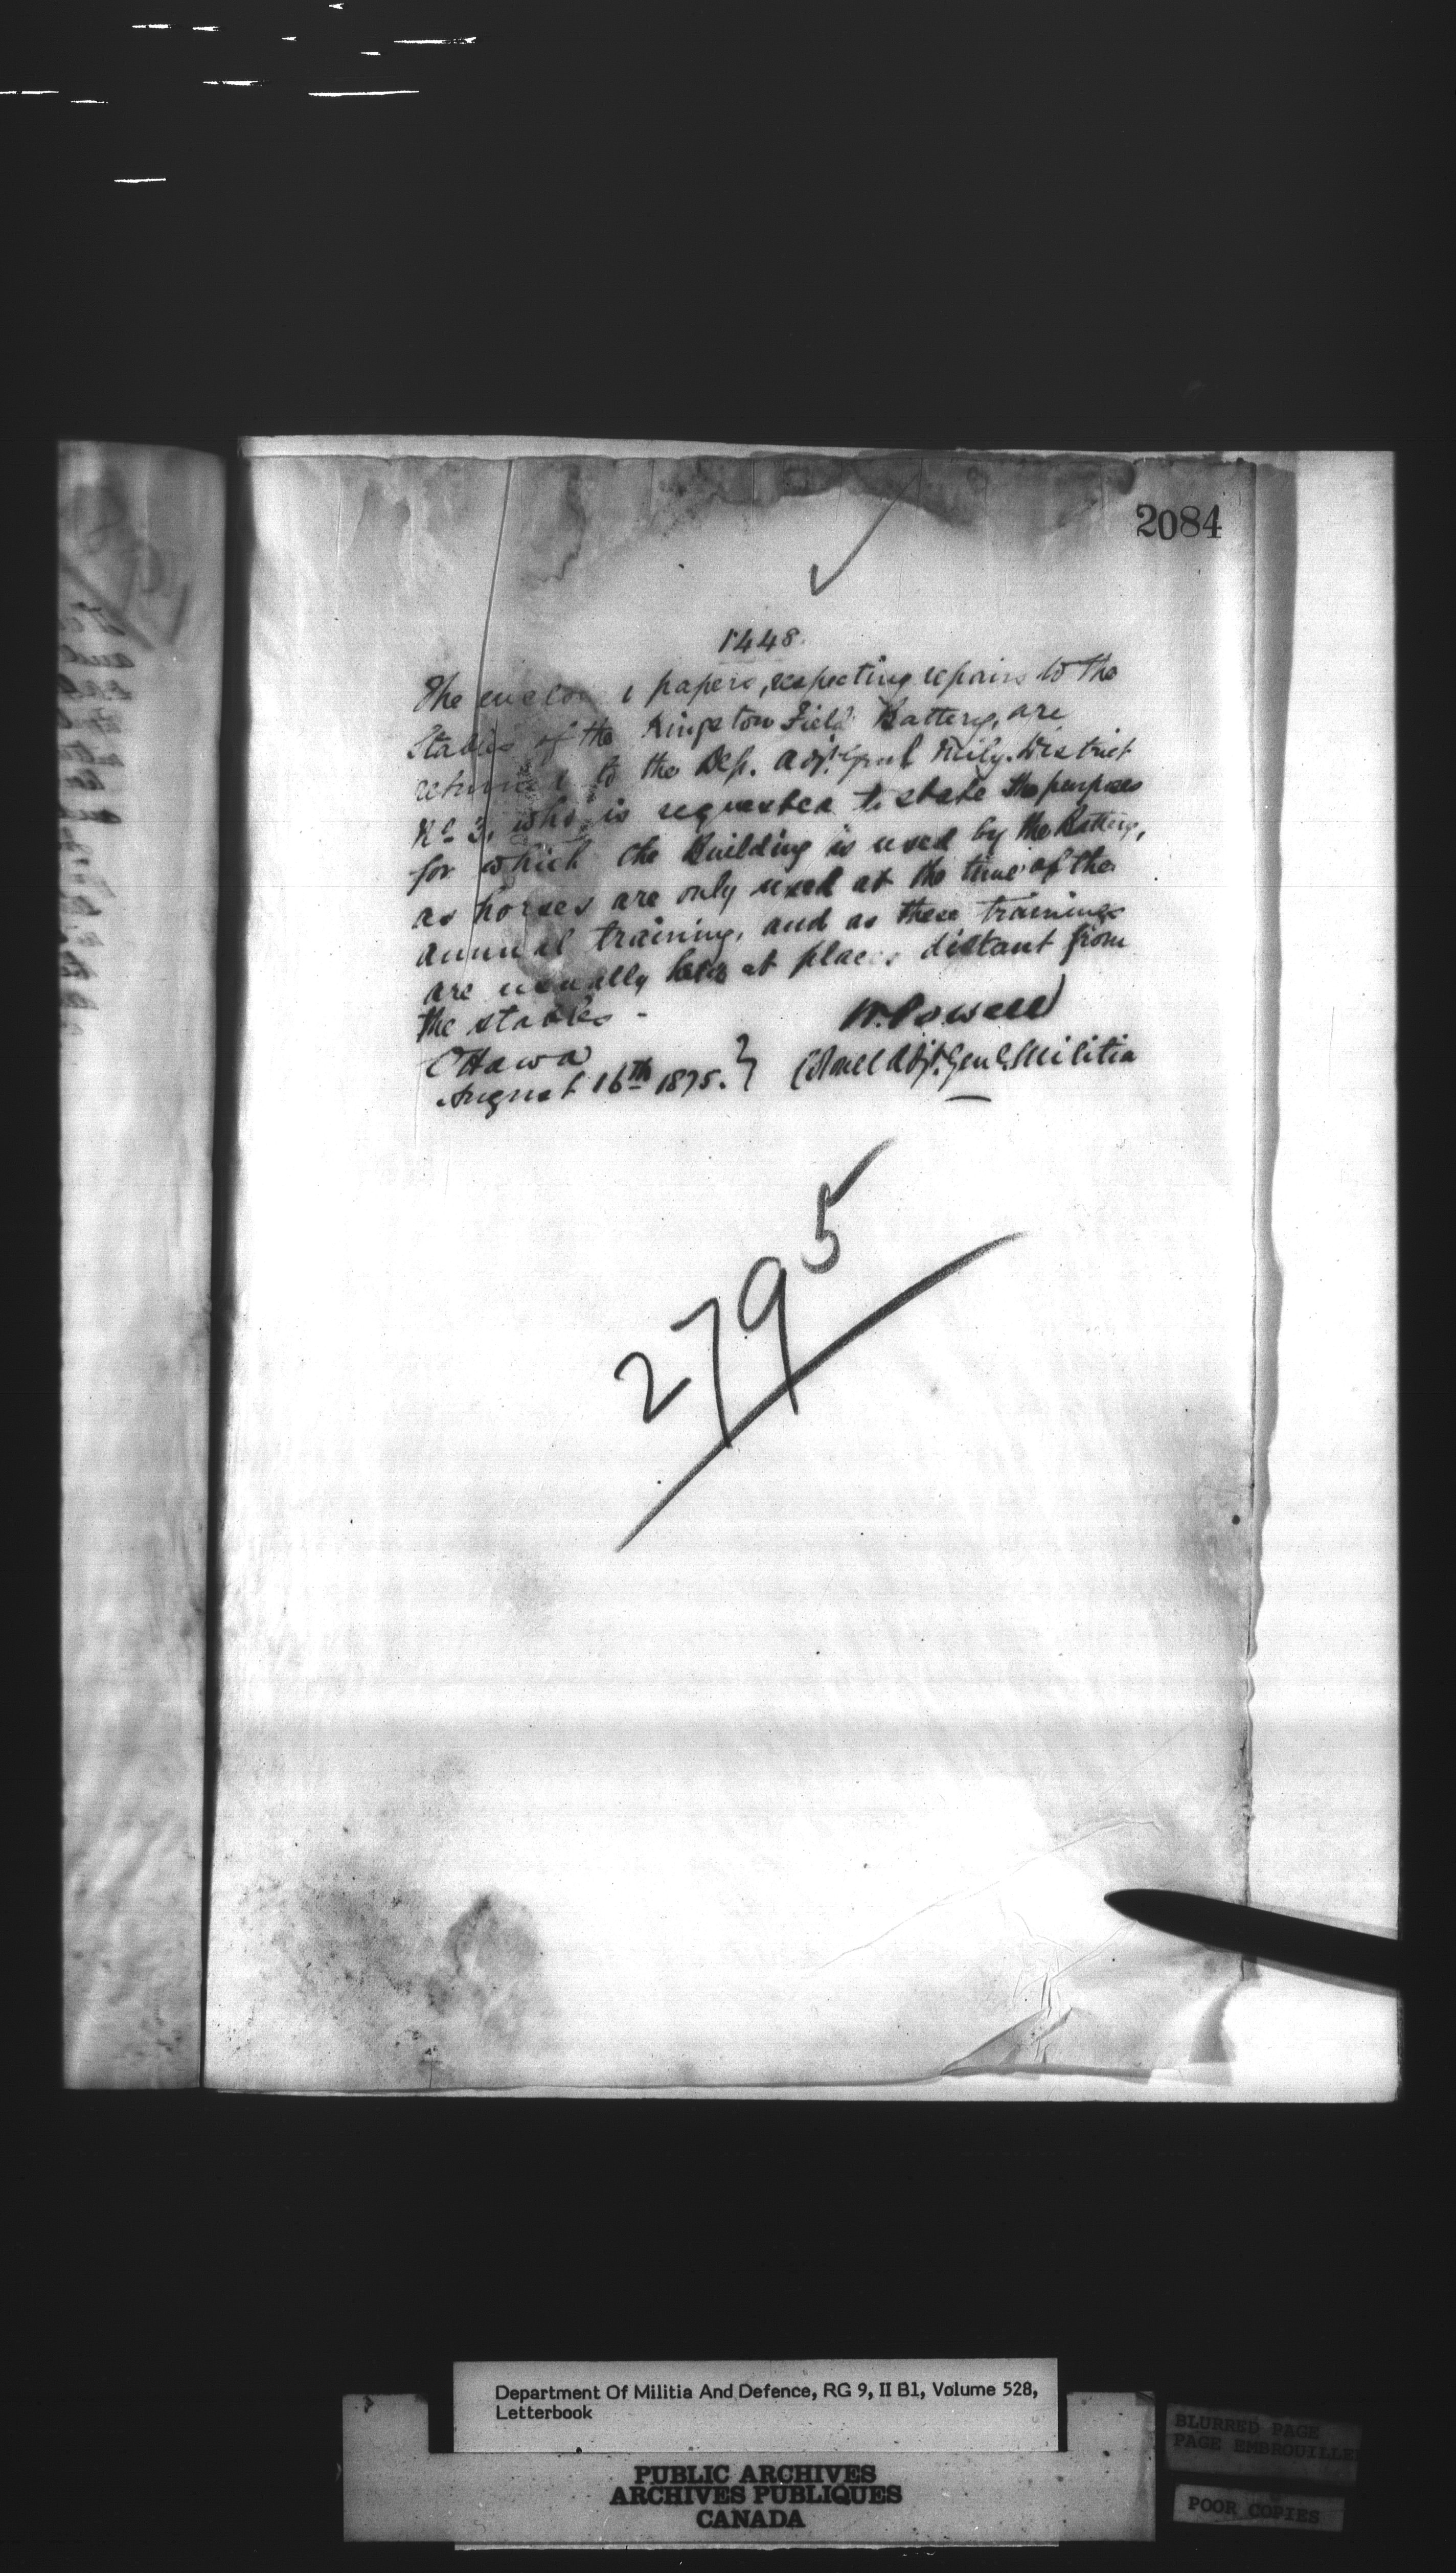 2084
1448.
The enclosed papers, respecting repairs to the
Stables of the Kingston Field Battery, are
returned to the Dep. Adjt. Genl Mily. District
No 3, who is requested to state the purposes
for which the Building is used by the Battery,
as horses are only used at the time of the
annual training, and as these trainings
are usually held at places distant from
the stables -
W. Powell
Ottawa
August 16th 1875. } Colonel Adjt. Genl. Militia
2795
Department Of Militia And Defence, RG 9, II B1, Volume 528,
Letterbook
PUBLIC ARCHIVES
ARCHIVES PUBLIQUES
CANADA
BLURRED PAGE
PAGE EMBROUILLE
POOR COPIES